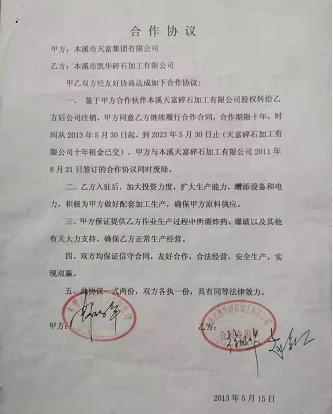 合作协议
甲方：本溪市天富集团有限公司
乙方：本溪市凯华碎石加工有限公司
甲乙双方经友好协商达成如下合作协议：
一、鉴于甲方合作伙伴本溪天富碎石加工有限公司股权转给乙
方后公司注销，甲方同意乙方继续履行合作合同，合作期限十年，时
间从2013年5月30日起，到2023年5月30日止（天富碎石加工有
限公司十年租金已交）。甲方与本溪天富碎石加工有限公司2011年
8月21日签订的合作协议同时废除。
二、乙方入驻后，加大投资力度，扩大生产能力，增添设备和电
力，积极为甲方做好配套加工生产，确保甲方原料供应。
三、甲方保证提供乙方作业生产过程中所需炸药、爆破以及其他
有关大力支持，确保乙方正常生产经营。
四、双方均保证信守合同，友好合作，合法经营，安全生产，实
现双赢。
五、此协议一式两份，双方各执一份，具有同等法律效力。
甲方：
乙方：
2013年5月15日